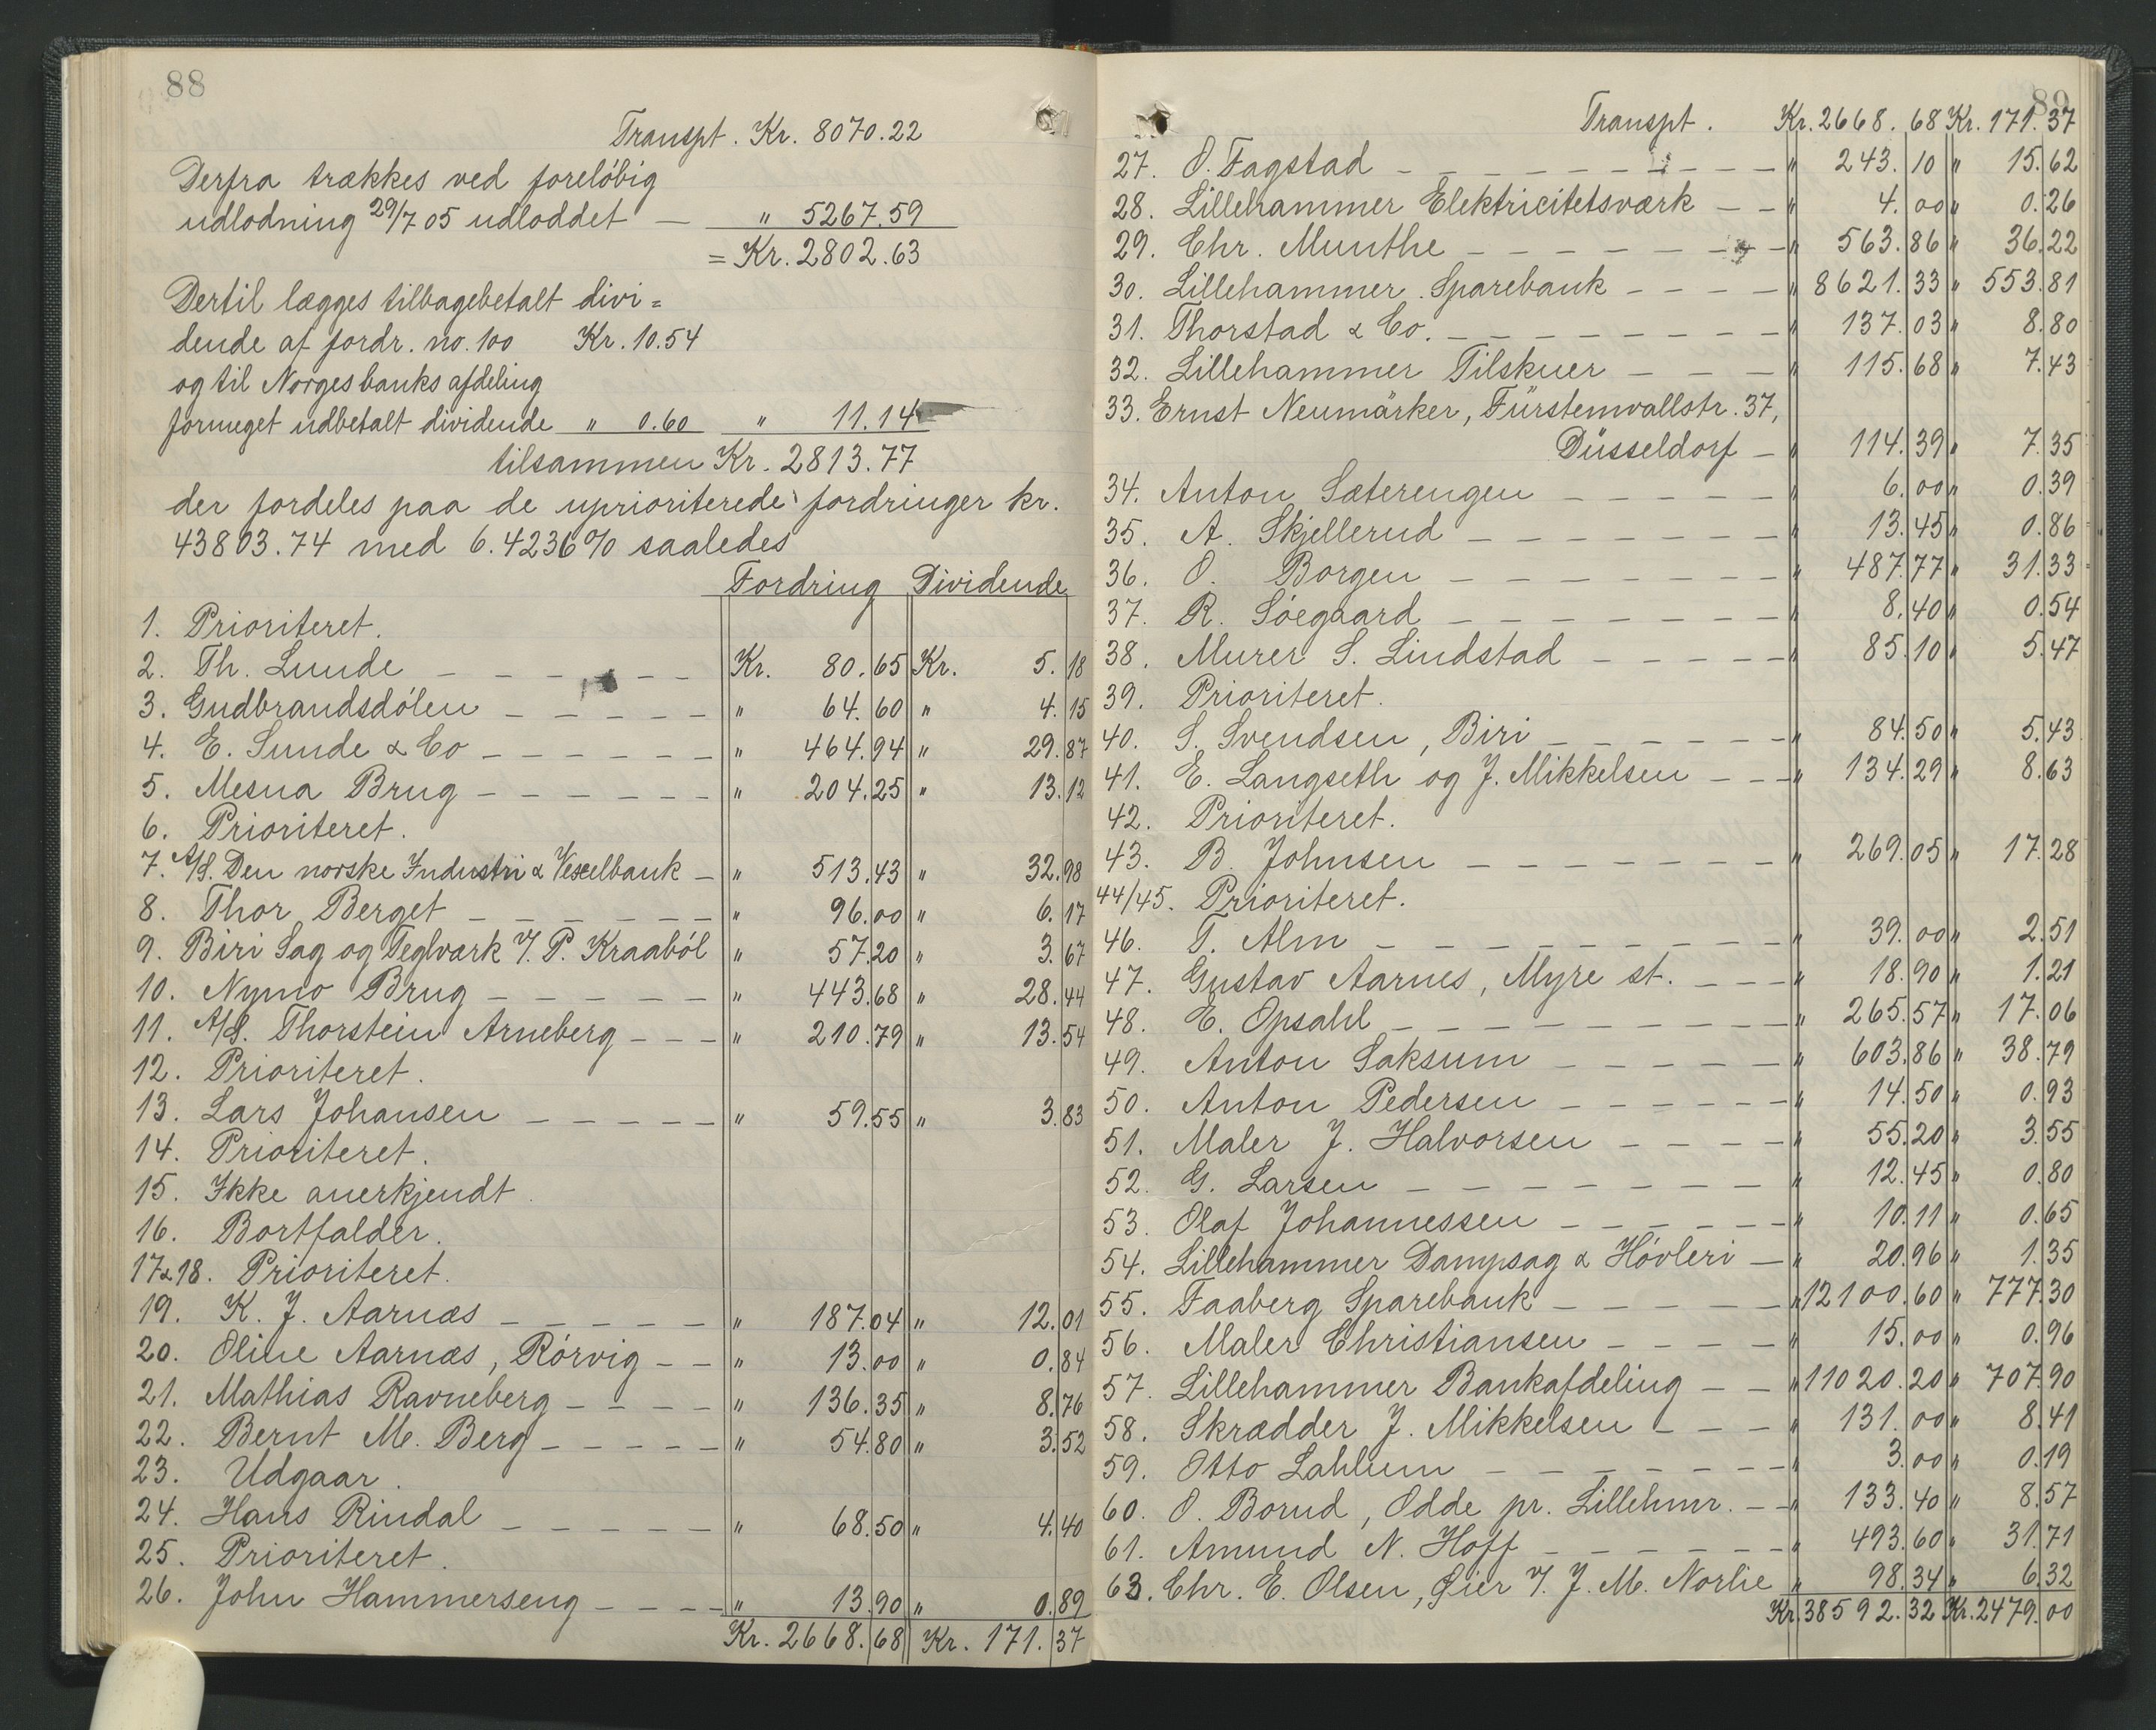 88
Transpt. Kr. 8070.22
Derfra trækkes ved foreløbig
udlodning 29/7 05 udloddet — " 5267.59
= Kr. 2802.63
Dertil lægges tilbagebetalt divi=
dende af fordr. no. 100 Kr. 10.54
og til Norges banks afdeling
formeget udbetalt dividende " 0.60 " 11.14
tilsammen Kr. 2813.77
der fordeles paa de uprioriterede fordringer kr.
43803.74 med 6.4236% saaledes
Fordring Dividende
1. Prioriteret.
2. Th. Lunde — Kr. 80.65 Kr. 5.18
3. Gudbrandsdølen — " 64.60 " 4.15
4. E. Sunde & Co — " 464.94 " 29.87
5. Mesna Brug — " 204.25 " 13.12
6. Prioriteret.
7. A/S. Den norske Industri & Vexelbank — " 513.43 " 32.98
8. Thor Berget — " 96.00 " 6.17
9. Biri Sag og Teglværk v/. P. Kraabøl " 57.20 " 3.67
10. Nymo Brug — " 443.68 " 28.44
11. A/S. Thorstein Arneberg — " 210.79 " 13.54
12. Prioriteret.
13. Lars Johansen — " 59.55 " 3.83
14. Prioriteret.
15. Ikke anerkjendt.
16. Bortfalder.
17 & 18. Prioriteret.
19. K. J. Aarnæs — " 187.04 " 12.01
20. Oline Aarnæs, Rørvig — " 13.00 " 0.84
21. Mathias Ravneberg — " 136.35 " 8.76
22. Bernt M. Berg — " 54.80 " 3.52
23. Udgaar.
24. Hans Rindal — " 68.50 " 4.40
25. Prioriteret.
26. John Hammerseng — " 13.90 " 0.89
Kr. 2668.68 Kr. 171.37
89
Transpt. Kr. 2668.68 Kr. 171.37
27. O. Fagstad — " 243.10 " 15.62
28. Lillehammer Elektricitetsværk — " 4.00 " 0.26
29. Chr. Munthe — " 563.86 " 36.22
30. Lillehammer Sparebank — " 8621.33 " 553.81
31. Thorstad & Co. — " 137.03 " 8.80
32. Lillehammer Tilskuer — " 115.68 " 7.43
33. Ernst Neumärker, Fürstenwallstr. 37,
Düsseldorf — " 114.39 " 7.35
34. Anton Sæterengen — " 6.00 " 0.39
35. A. Skjellerud — " 13.45 " 0.86
36. O. Borgen — " 487.77 " 31.33
37. R. Søegaard — " 8.40 " 0.54
38. Murer S. Lindstad — " 85.10 " 5.47
39. Prioriteret.
40. S. Svendsen, Biri — " 84.50 " 5.43
41. E. Langseth og J. Mikkelsen — " 134.29 " 8.63
42. Prioriteret.
43. B. Johnsen — " 269.05 " 17.28
44/45. Prioriteret.
46. T. Alm — " 39.00 " 2.51
47. Gustav Aarnes, Myre st. — " 18.90 " 1.21
48. E. Opsahl — " 265.57 " 17.06
49. Anton Saksum — " 603.86 " 38.79
50. Anton Pedersen — " 14.50 " 0.93
51. Maler J. Halvorsen — " 55.20 " 3.55
52. G. Larsen — " 12.45 " 0.80
53. Olaf Johannessen — " 10.11 " 0.65
54. Lillehammer Dampsag & Høvleri — " 20.96 " 1.35
55. Faaberg Sparebank — " 12100.60 " 777.30
56. Maler Christiansen — " 15.00 " 0.96
57. Lillehammer Bankafdeling — " 11020.20 " 707.90
58. Skrædder J. Mikkelsen — " 131.00 " 8.41
59. Otto Lahlum — " 3.00 " 0.19
60. O. Borud, Odde pr. Lillehmr. — " 133.40 " 8.57
61. Amund N. Hoff — " 493.60 " 31.71
63. Chr. E. Olsen, Øier v/. J. M. Norlie " 98.34 " 6.32
Kr. 38592.32 Kr. 2479.00